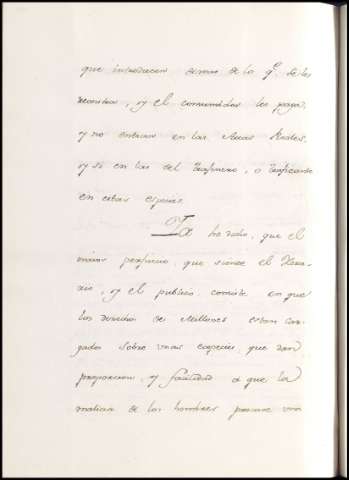 que introducen demas de la q.e se les
decomisa, y el consumidor los paga,
y no entran en las Arcas Reales,
y si en las del Trajinero, o traficante
en estas especies.
Ya ha dicho, que el
maior perjuicio, que siente el Hera-
rio, y el publico, consiste en que
los derechos de Millones estan car-
gados sobre unas especies, que dan
proporcion, y facilidad a que la
malicia de los hombres procure una